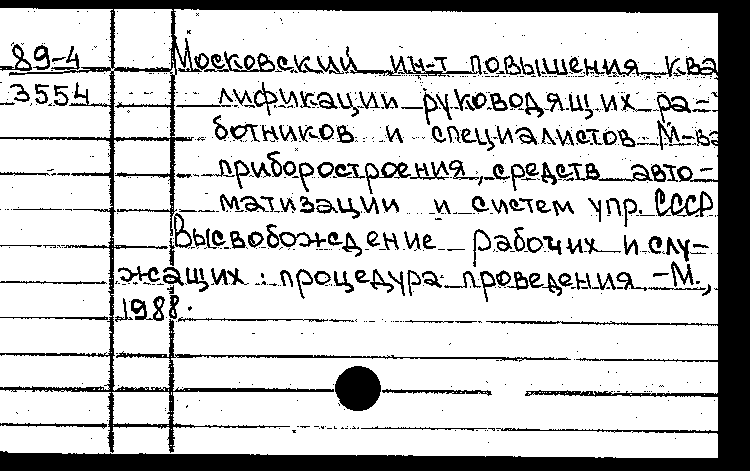 89-4 Московский ин-т повышения ква
3554 лификации руководящих ра-
ботников и специалистов М-ва
приборостроения, средств авто-
матизации и систем упр. СССР
Высвобождение рабочих и слу-
жащих : процедура проведения. -М.,
1988.